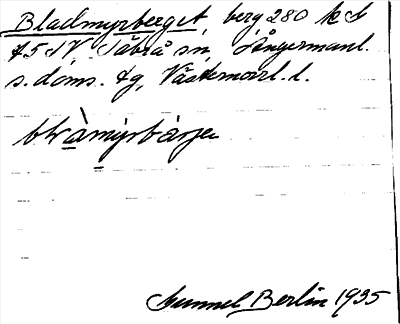 Bladmyrberget, berg 280 kl
451V Säbrå sn, Ångermanl.
s. doms. tg, Västernorrl. l.
Gunnel Berlin 1935